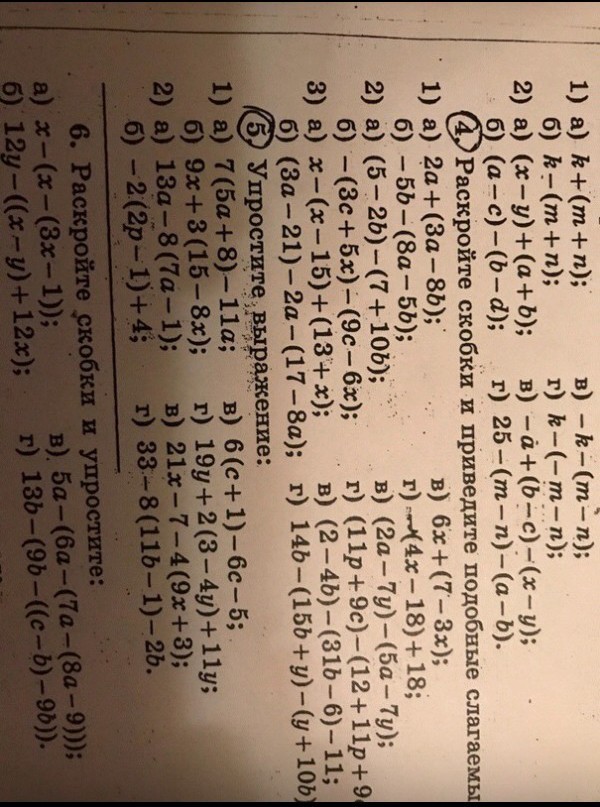 1) а) k+(m+n); в) −k−(m−n);
б) k−(m+n); г) k−(−m−n);
2) а) (x−y)+(a+b); в) −a+(b−c)−(x−y);
б) (a−c)−(b−d); г) 25−(m−n)−(a−b).
4. Раскройте скобки и приведите подобные слагаемы
1) а) 2a+(3a−8b); в) 6x+(7−3x);
б) −5b−(8a−5b); г) (4x−18)+18;
2) а) (5−2b)−(7+10b); в) (2a−7y)−(5a−7y);
б) −(3c+5x)−(9c−6x); г) (11p+9c)−(12+11p+9c
3) а) x−(x−15)+(13+x); в) (2−4b)−(31b−6)−11;
б) (3a−21)−2a−(17−8a); г) 14b−(15b+y)−(y+10b)
5. Упростите выражение:
1) а) 7(5a+8)−11a; в) 6(c+1)−6c−5;
б) 9x+3(15−8x); г) 19y+2(3−4y)+11y;
2) а) 13a−8(7a−1); в) 21x−7−4(9x+3);
б) −2(2p−1)+4; г) 33−8(11b−1)−2b.
6. Раскройте скобки и упростите:
а) x−(x−(3x−1)); в) 5a−(6a−(7a−(8a−9)));
б) 12y−((x−y)+12x); г) 13b−(9b−((c−b)−9b)).